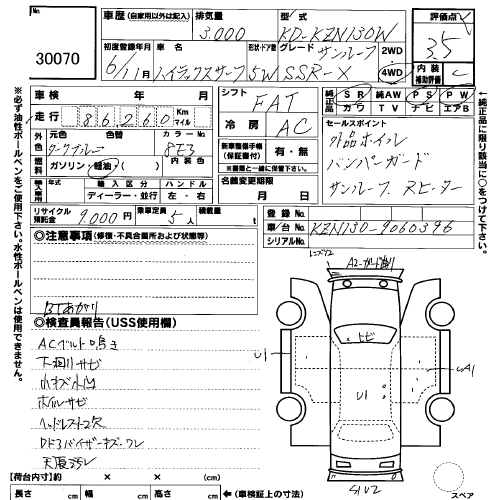 車歴 (自家用以外は記入) 排気量 3,000 型式 KD-KZN130W 評価点 3.5
30070
初度登録年月 6/11月 車名 ハイラックスサーフ 形状・ドア数 5W グレード サンルーフ SSR-X 2WD 4WD 内装補助評価 C
車検 年 月 シフト FAT 純正品 SR 純AW PS PW
走行 86260 Km マイル カワ TV ナビ エアB
冷房 AC セールスポイント
外色 元色 ダークブルー 色替 カラーNo. 8E3 外品ホイル
燃料 ガソリン 軽油 ( ) 内装色 新車整備手帳 (保証書付) 有・無 バンパーガード
※後日に一括に保管して下さい。
輸入車用 年式 輸入区分 ハンドル 名義変更期限 サンルーフ, Rヒーター
ディーラー・並行 左・右 月 日
リサイクル預託金 9,000円 乗車定員 5人 積載量 t 登録No.
車台No. KZN130-9060396
シリアルNo.
◎注意事項 (修復・不具合箇所および状態等)
BTあがり
◎検査員報告 (USS使用欄)
ACベルト鳴き
下廻りサビ
小キズ小凹
ホイルサビ
ヘッドレスト欠
天張汚レ
A2
ヒビ
U1
U1
UA1
S1U2
スペア
【荷台内寸】約 × × (cm)
長さ cm 幅 cm 高さ cm ←(車検証上の寸法)
※必ず油性ボールペンをご使用下さい。水性ボールペンは使用できません。
←純正品に限り該当項目に○をつけて下さい。